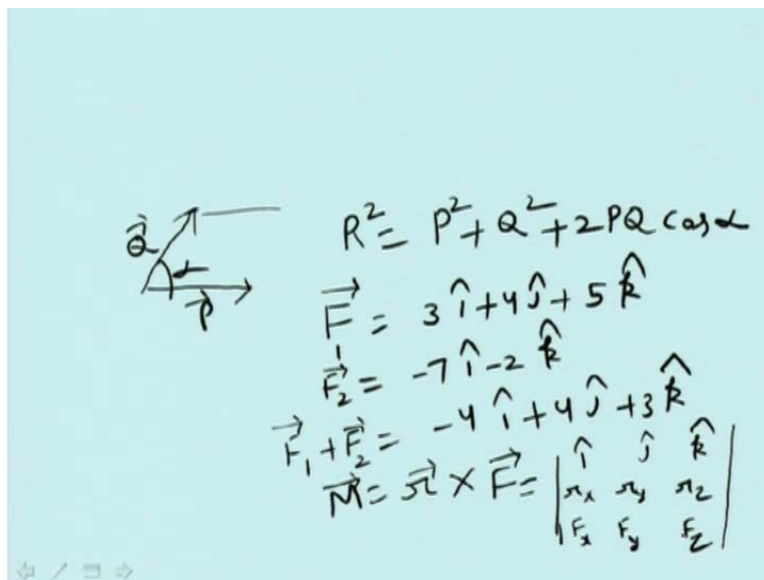 Q⃗
α
P⃗
R² = P² + Q² + 2PQ cosα
F⃗₁ = 3î + 4ĵ + 5k̂
F⃗₂ = -7î - 2k̂
F⃗₁ + F⃗₂ = -4î + 4ĵ + 3k̂
M⃗ = r⃗ × F⃗ = | î ĵ k̂ |
| r_x r_y r_z |
| F_x F_y F_z |